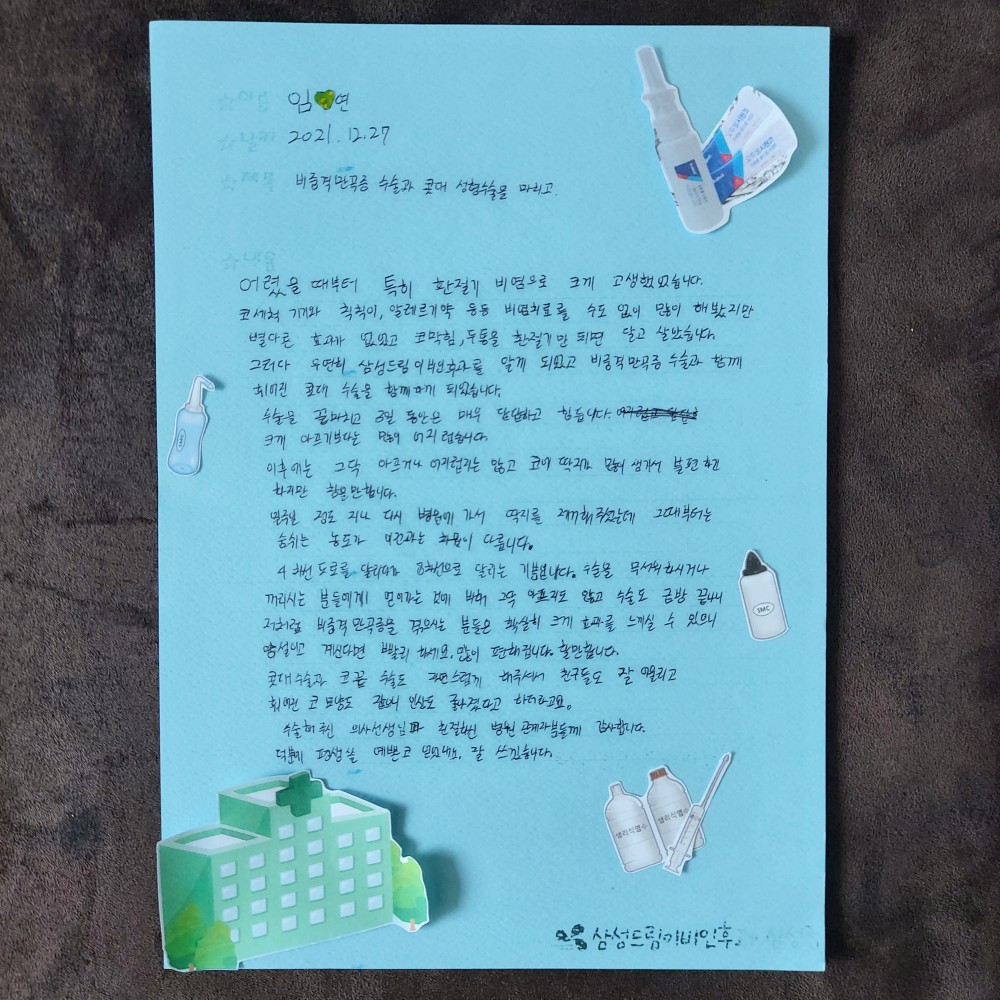 임 연
2021.12.27
비중격만곡증 수술과 콧대 성형수술을 마치고.
어렸을 때부터 특히 환절기 비염으로 크게 고생했었습니다.
코세척 기기와 칙칙이, 알레르기약 등등 비염치료를 수도 없이 많이 해봤지만
별다른 효과가 없었고 코막힘, 두통을 환절기만 되면 달고 살았습니다.
그러다 우연히 삼성드림이비인후과를 알게 되었고 비중격만곡증 수술과 함께
휘어진 콧대 수술을 함께 하게 되었습니다.
수술을 끝마치고 3일 동안은 매우 답답하고 힘듭니다.
크게 아프기보다는 많이 어지럽습니다.
이후에는 그닥 아프거나 어지럽지는 않고 코에 딱지가 많이 생겨서 불편하긴
하지만 참을만합니다.
일주일 정도 지나 다시 병원에 가서 딱지를 제거해주셨는데 그때부터는
숨쉬는 농도가 이전과는 차원이 다릅니다.
4차선 도로를 달리다가 8차선으로 달리는 기분입니다. 수술을 무서워하시거나
꺼리시는 분들에게 먼저 는 것에 비해 그닥 아프지도 않고 수술도 금방 끝나니
저처럼 비중격만곡증을 겪으시는 분들은 확실히 크게 효과를 느끼실 수 있으니
망설이고 계신다면 빨리 하세요. 많이 편해집니다. 할만합니다.
콧대수술과 코끝 수술도 자연스럽게 해주셔서 친구들도 잘 어울리고
휘어진 코 모양도 잡혀서 인상도 좋아졌다고 하더라고요.
수술해주신 의사선생님과 친절하신 병원 관계자분들께 감사합니다.
덕분에 평생 예쁜코 잘 쓰겠습니다.
SMC
생리식염수
생리식염수
삼성드림이비인후